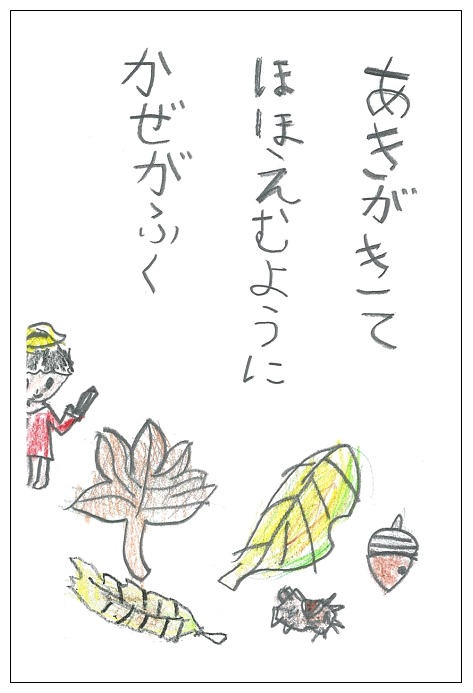 あきがきて
ほほえむように
かぜがふく